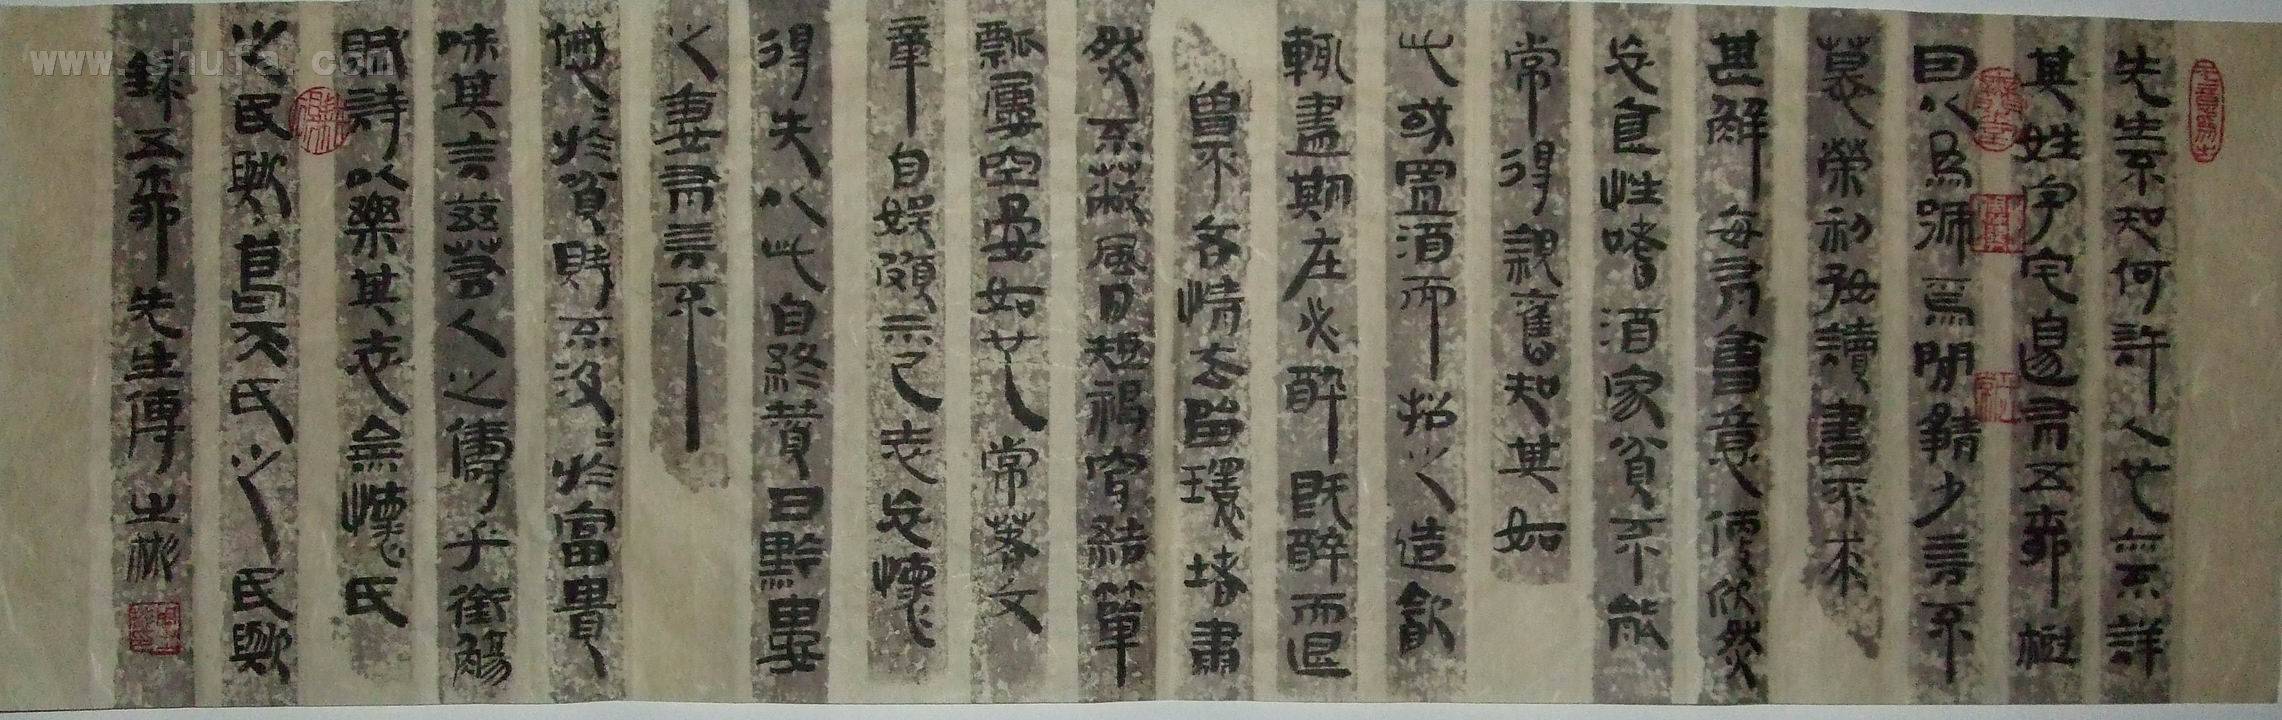 先生不知何許人也亦不詳
其姓字宅邊有五柳樹
因以為號焉閒靜少言不
慕榮利好讀書不求
甚解每有會意便欣然
忘食性嗜酒家貧不能
常得親舊知其如
此或置酒而招之造飲
輒盡期在必醉既醉而退
曾不吝情去留環堵蕭
然不蔽風日短褐穿結簞
瓢屢空晏如也常著文
章自娛頗示己志忘懷
得失以此自終贊曰黔婁
之妻有言不
戚戚於貧賤不汲汲於富貴
味其言茲若人之儔乎銜觴
賦詩以樂其志無懷氏
之民歟葛天氏之民歟
錄五柳先生傳 之彬
www.shufa.com